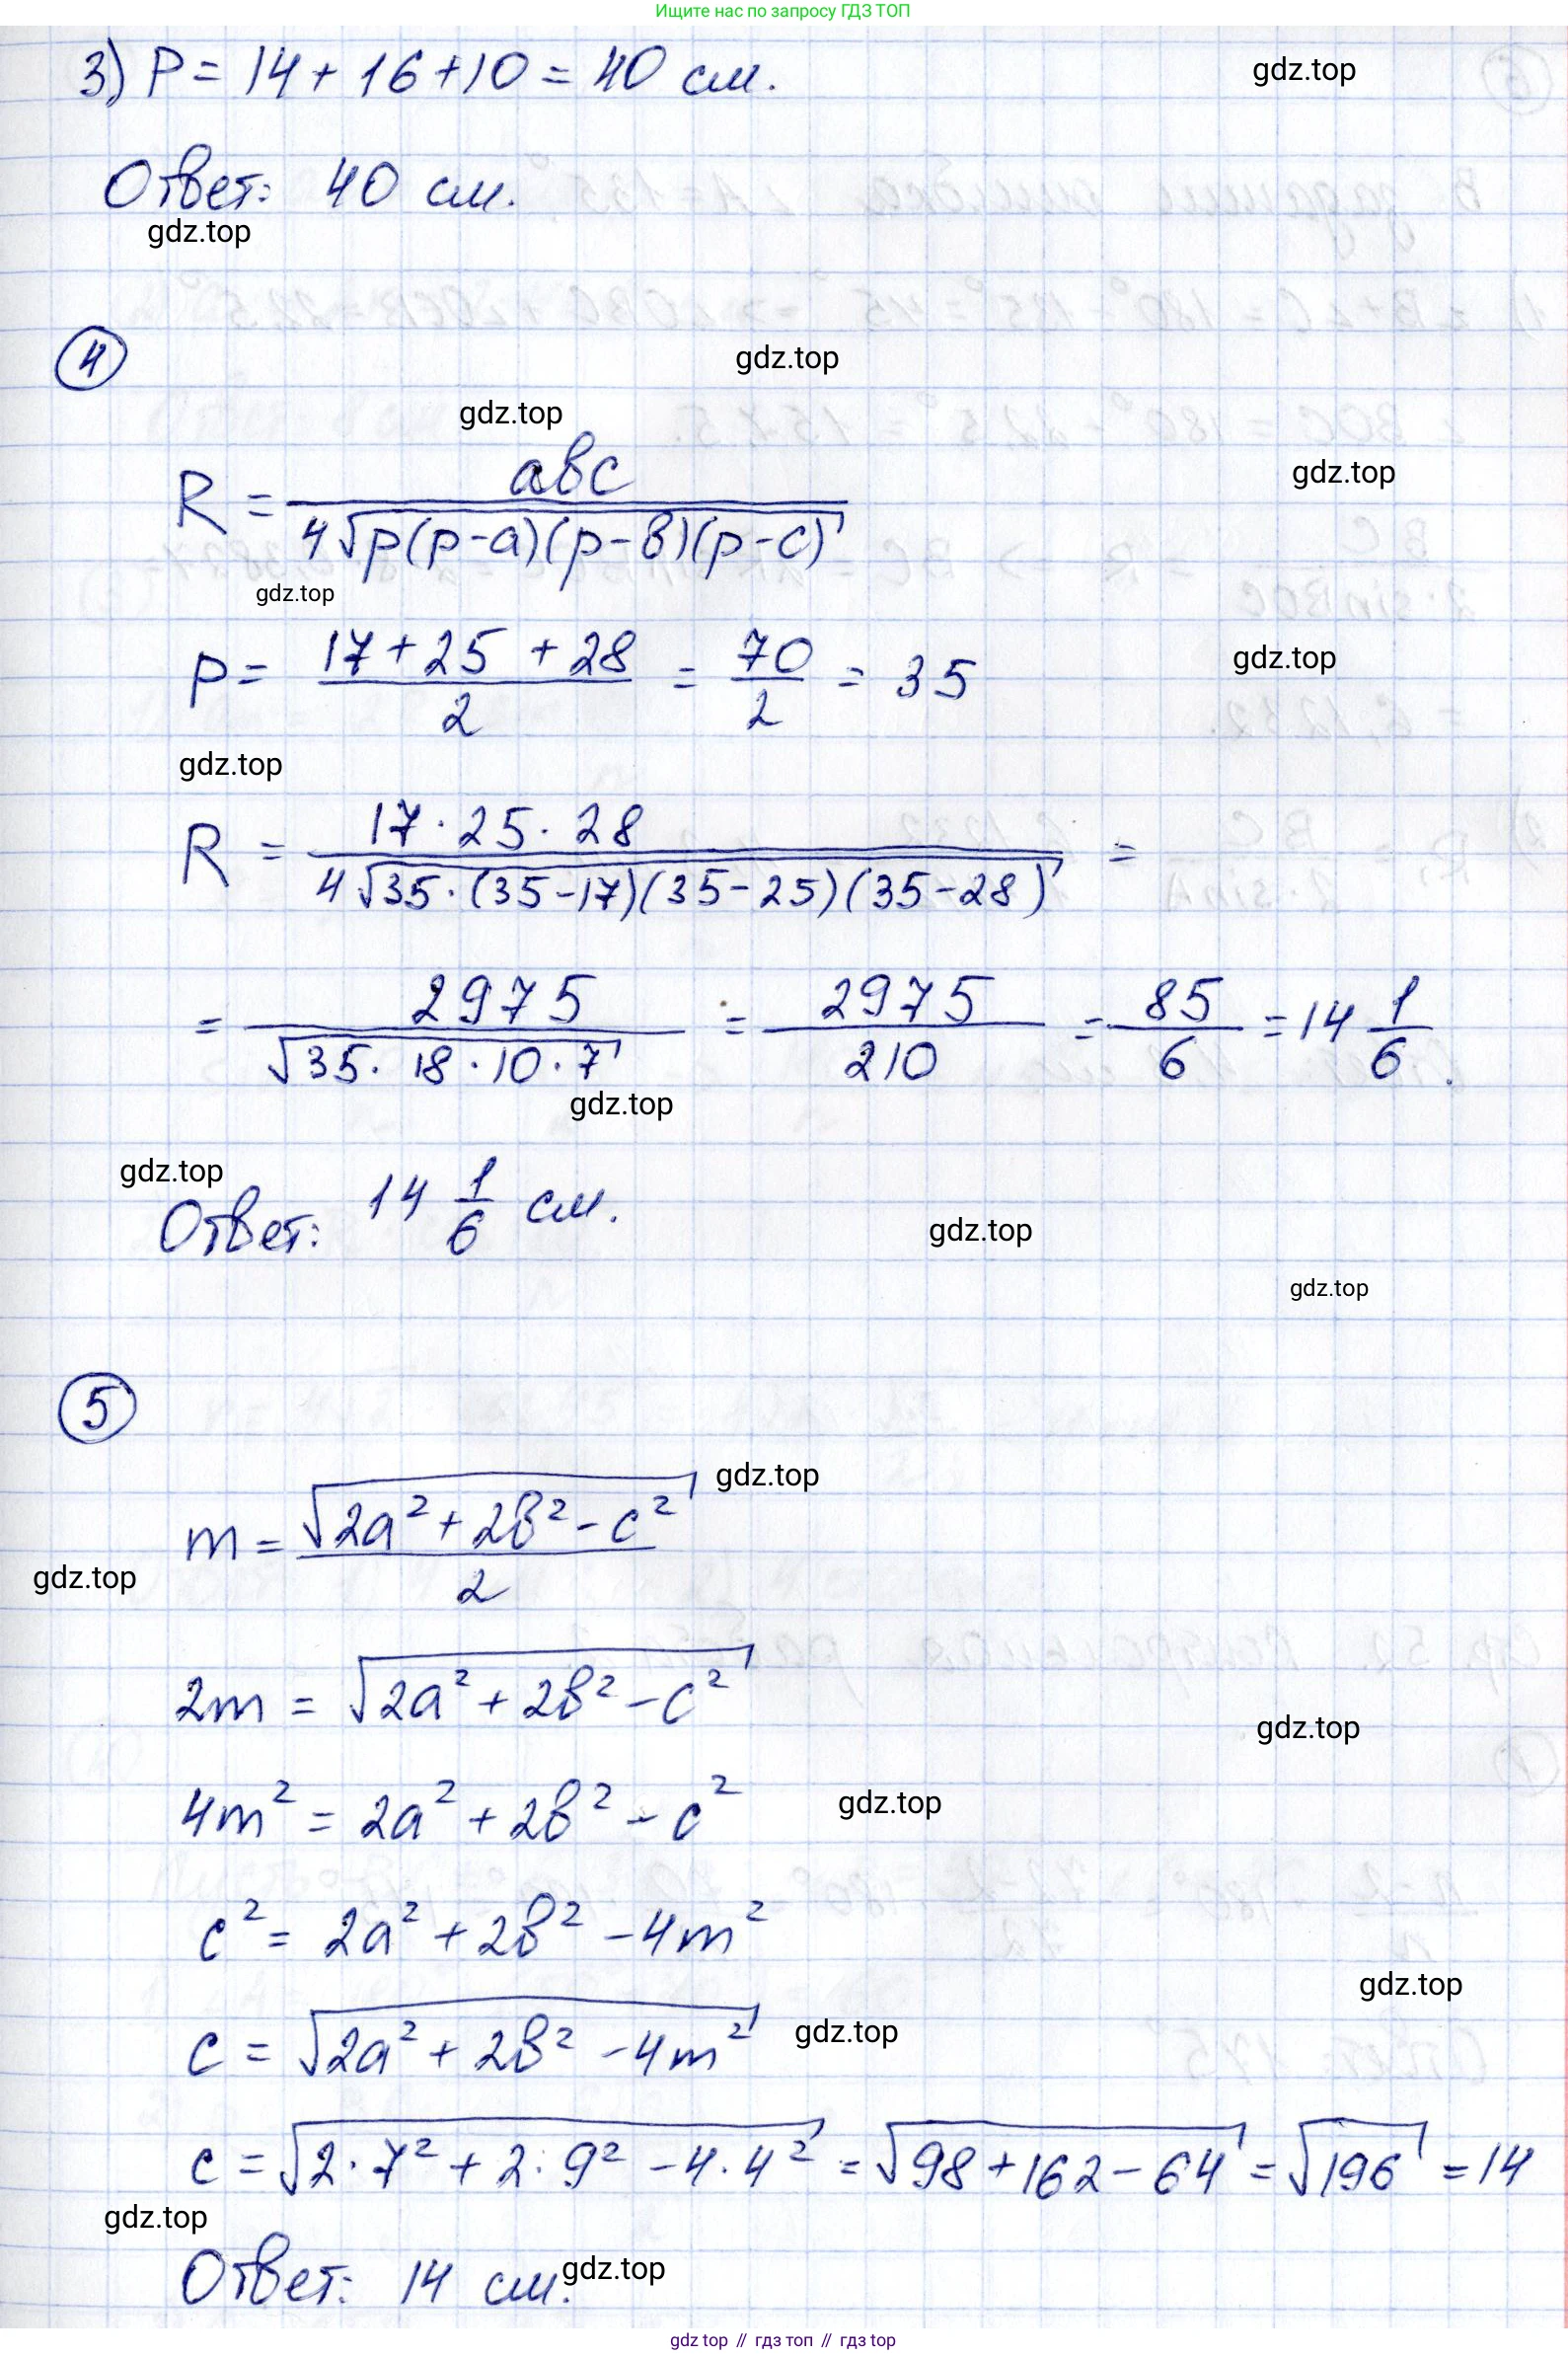 Ищите нас по запросу ГДЗ ТОП
3) P = 14 + 16 + 10 = 40 см.
gdz.top
Ответ: 40 см.
gdz.top
4
gdz.top
gdz.top
gdz.top
R = abc / 4√p(p-a)(p-b)(p-c)
gdz.top
p = 17 + 25 + 28 / 2 = 70 / 2 = 35
gdz.top
gdz.top
R = 17 · 25 · 28 / 4√35 · (35-17)(35-25)(35-28) =
= 2975 / √35 · 18 · 10 · 7 = 2975 / 210 = 85 / 6 = 14 1/6.
gdz.top
gdz.top
Ответ: 14 1/6 см.
gdz.top
gdz.top
5
gdz.top
m = √2a² + 2b² - c² / 2
gdz.top
2m = √2a² + 2b² - c²
gdz.top
4m² = 2a² + 2b² - c²
gdz.top
c² = 2a² + 2b² - 4m²
gdz.top
c = √2a² + 2b² - 4m²
gdz.top
c = √2 · 7² + 2 · 9² - 4 · 4² = √98 + 162 - 64 = √196 = 14
gdz.top
Ответ: 14 см.
gdz.top
gdz top // гдз топ // гдз top